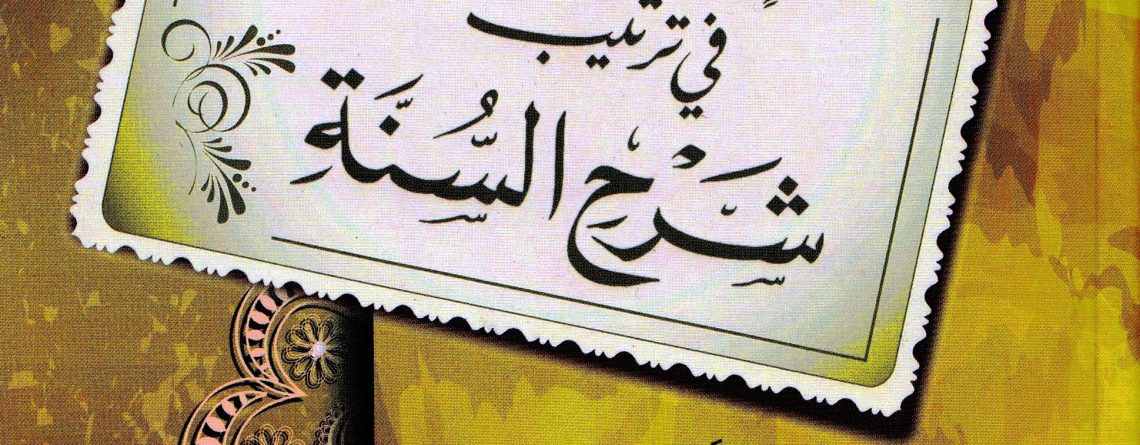 في ترتيب
شَرْحِ السُّنَّةِ